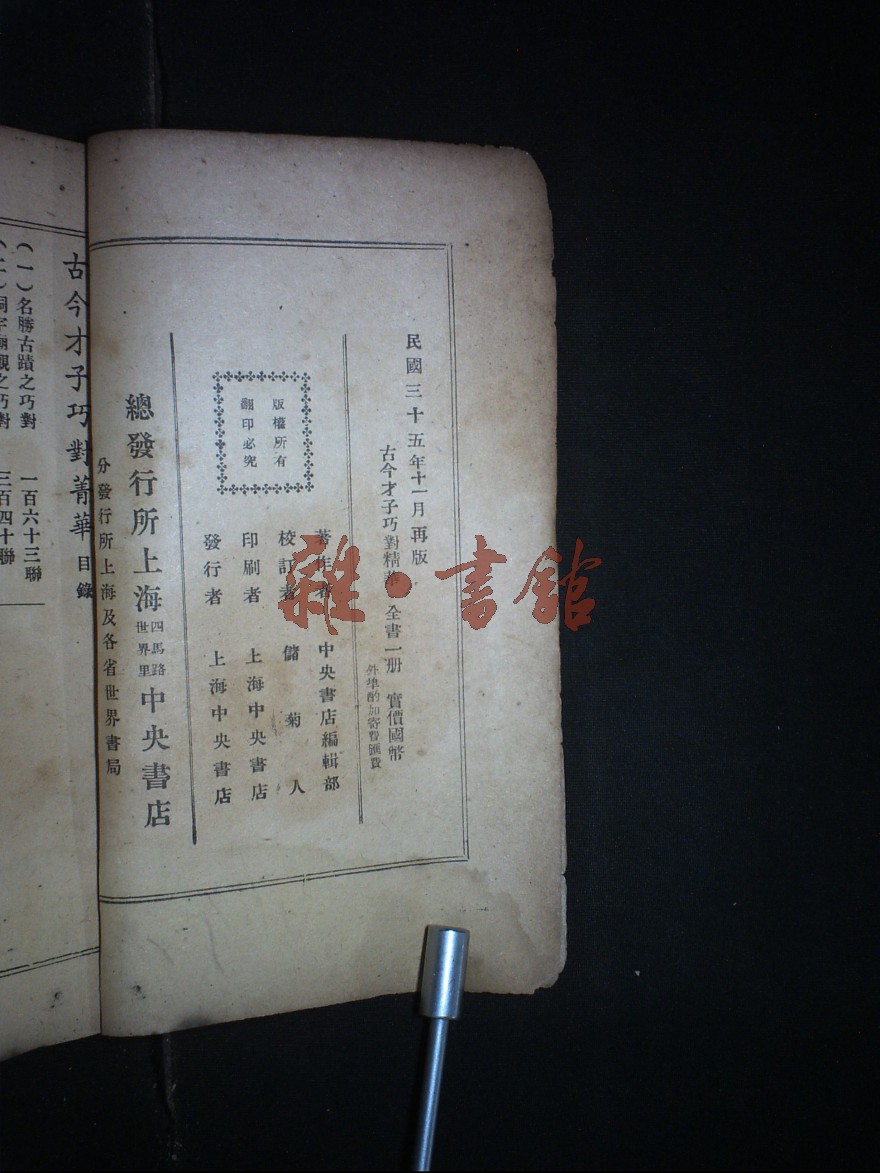 民國三十五年十一月再版
古今才子巧對精華 全書一册 實價國幣
外埠酌加寄費匯費
著作者 中央書店編輯部
校訂者 儲菊人
印刷者 上海中央書店
發行者 上海中央書店
版權所有
翻印必究
總發行所上海四馬路世界里中央書店
分發行所上海及各省世界書局
古今才子巧對菁華 目錄
(一)名勝古蹟之巧對 一百六十三聯
(二)祠宇廟觀之巧對 三百四十聯
雜·書館